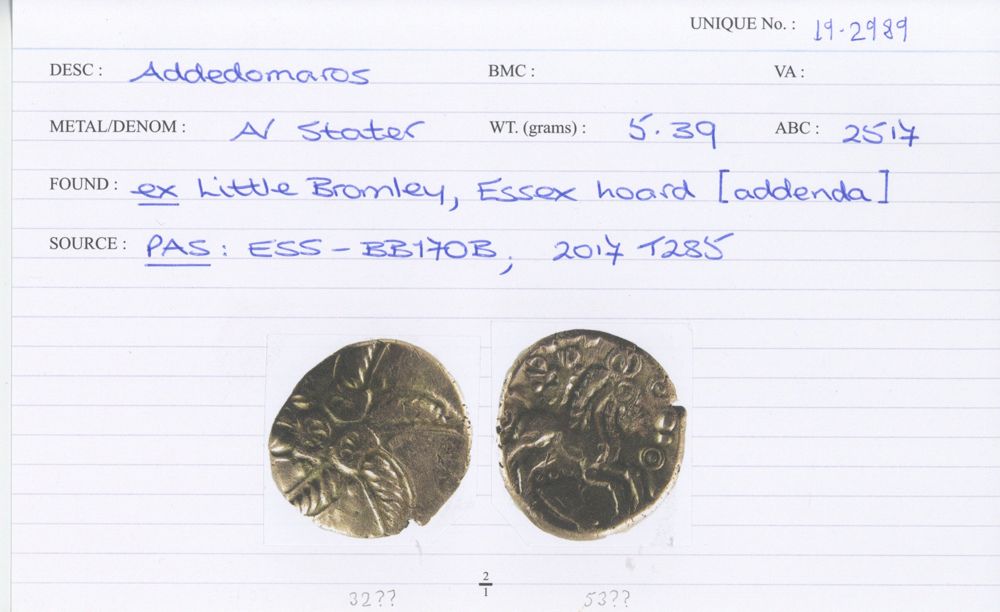 UNIQUE No. : 19-2989
DESC : Addedomaros BMC : VA :
METAL/DENOM : AV Stater WT. (grams) : 5.39 ABC : 2517
FOUND : ex Little Bromley, Essex hoard [addenda]
SOURCE : PAS : ESS-BB170B, 2017 T285
2
1
32?? 53??